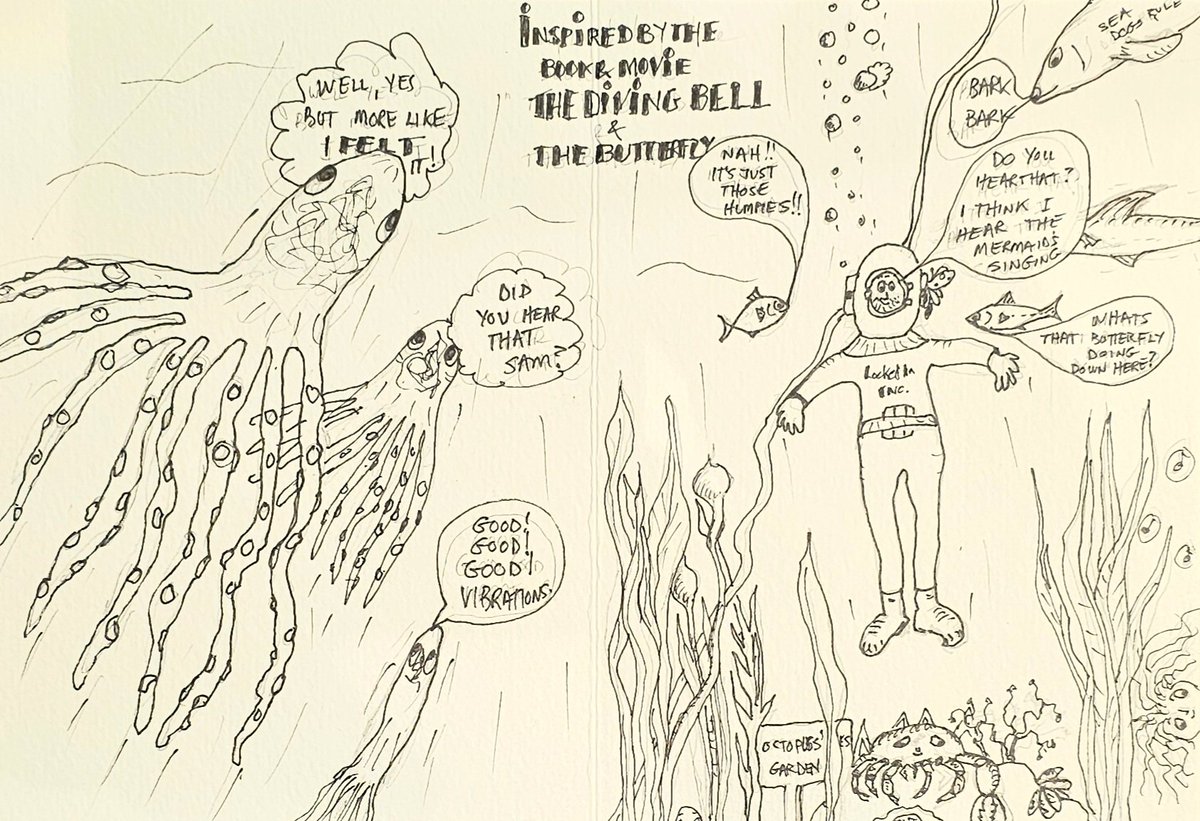 INSPIRED BY THE
BOOK & MOVIE
THE DIVING BELL
&
THE BUTTERFLY
WELL, YES
BUT MORE LIKE
I FELT
IT!
DID
YOU HEAR
THAT
SAM?
GOOD!
GOOD!
GOOD!
VIBRATIONS.
NAH!!
IT'S JUST
THOSE
HUMPIES!!
SEA
DOGS RULE
BARK
BARK
DO YOU
HEAR THAT?
I THINK I
HEAR THE
MERMAIDS
SINGING
WHATS
THAT BUTTERFLY
DOING
DOWN HERE?
Locked In
INC.
OCTOPUS'
GARDEN
ES